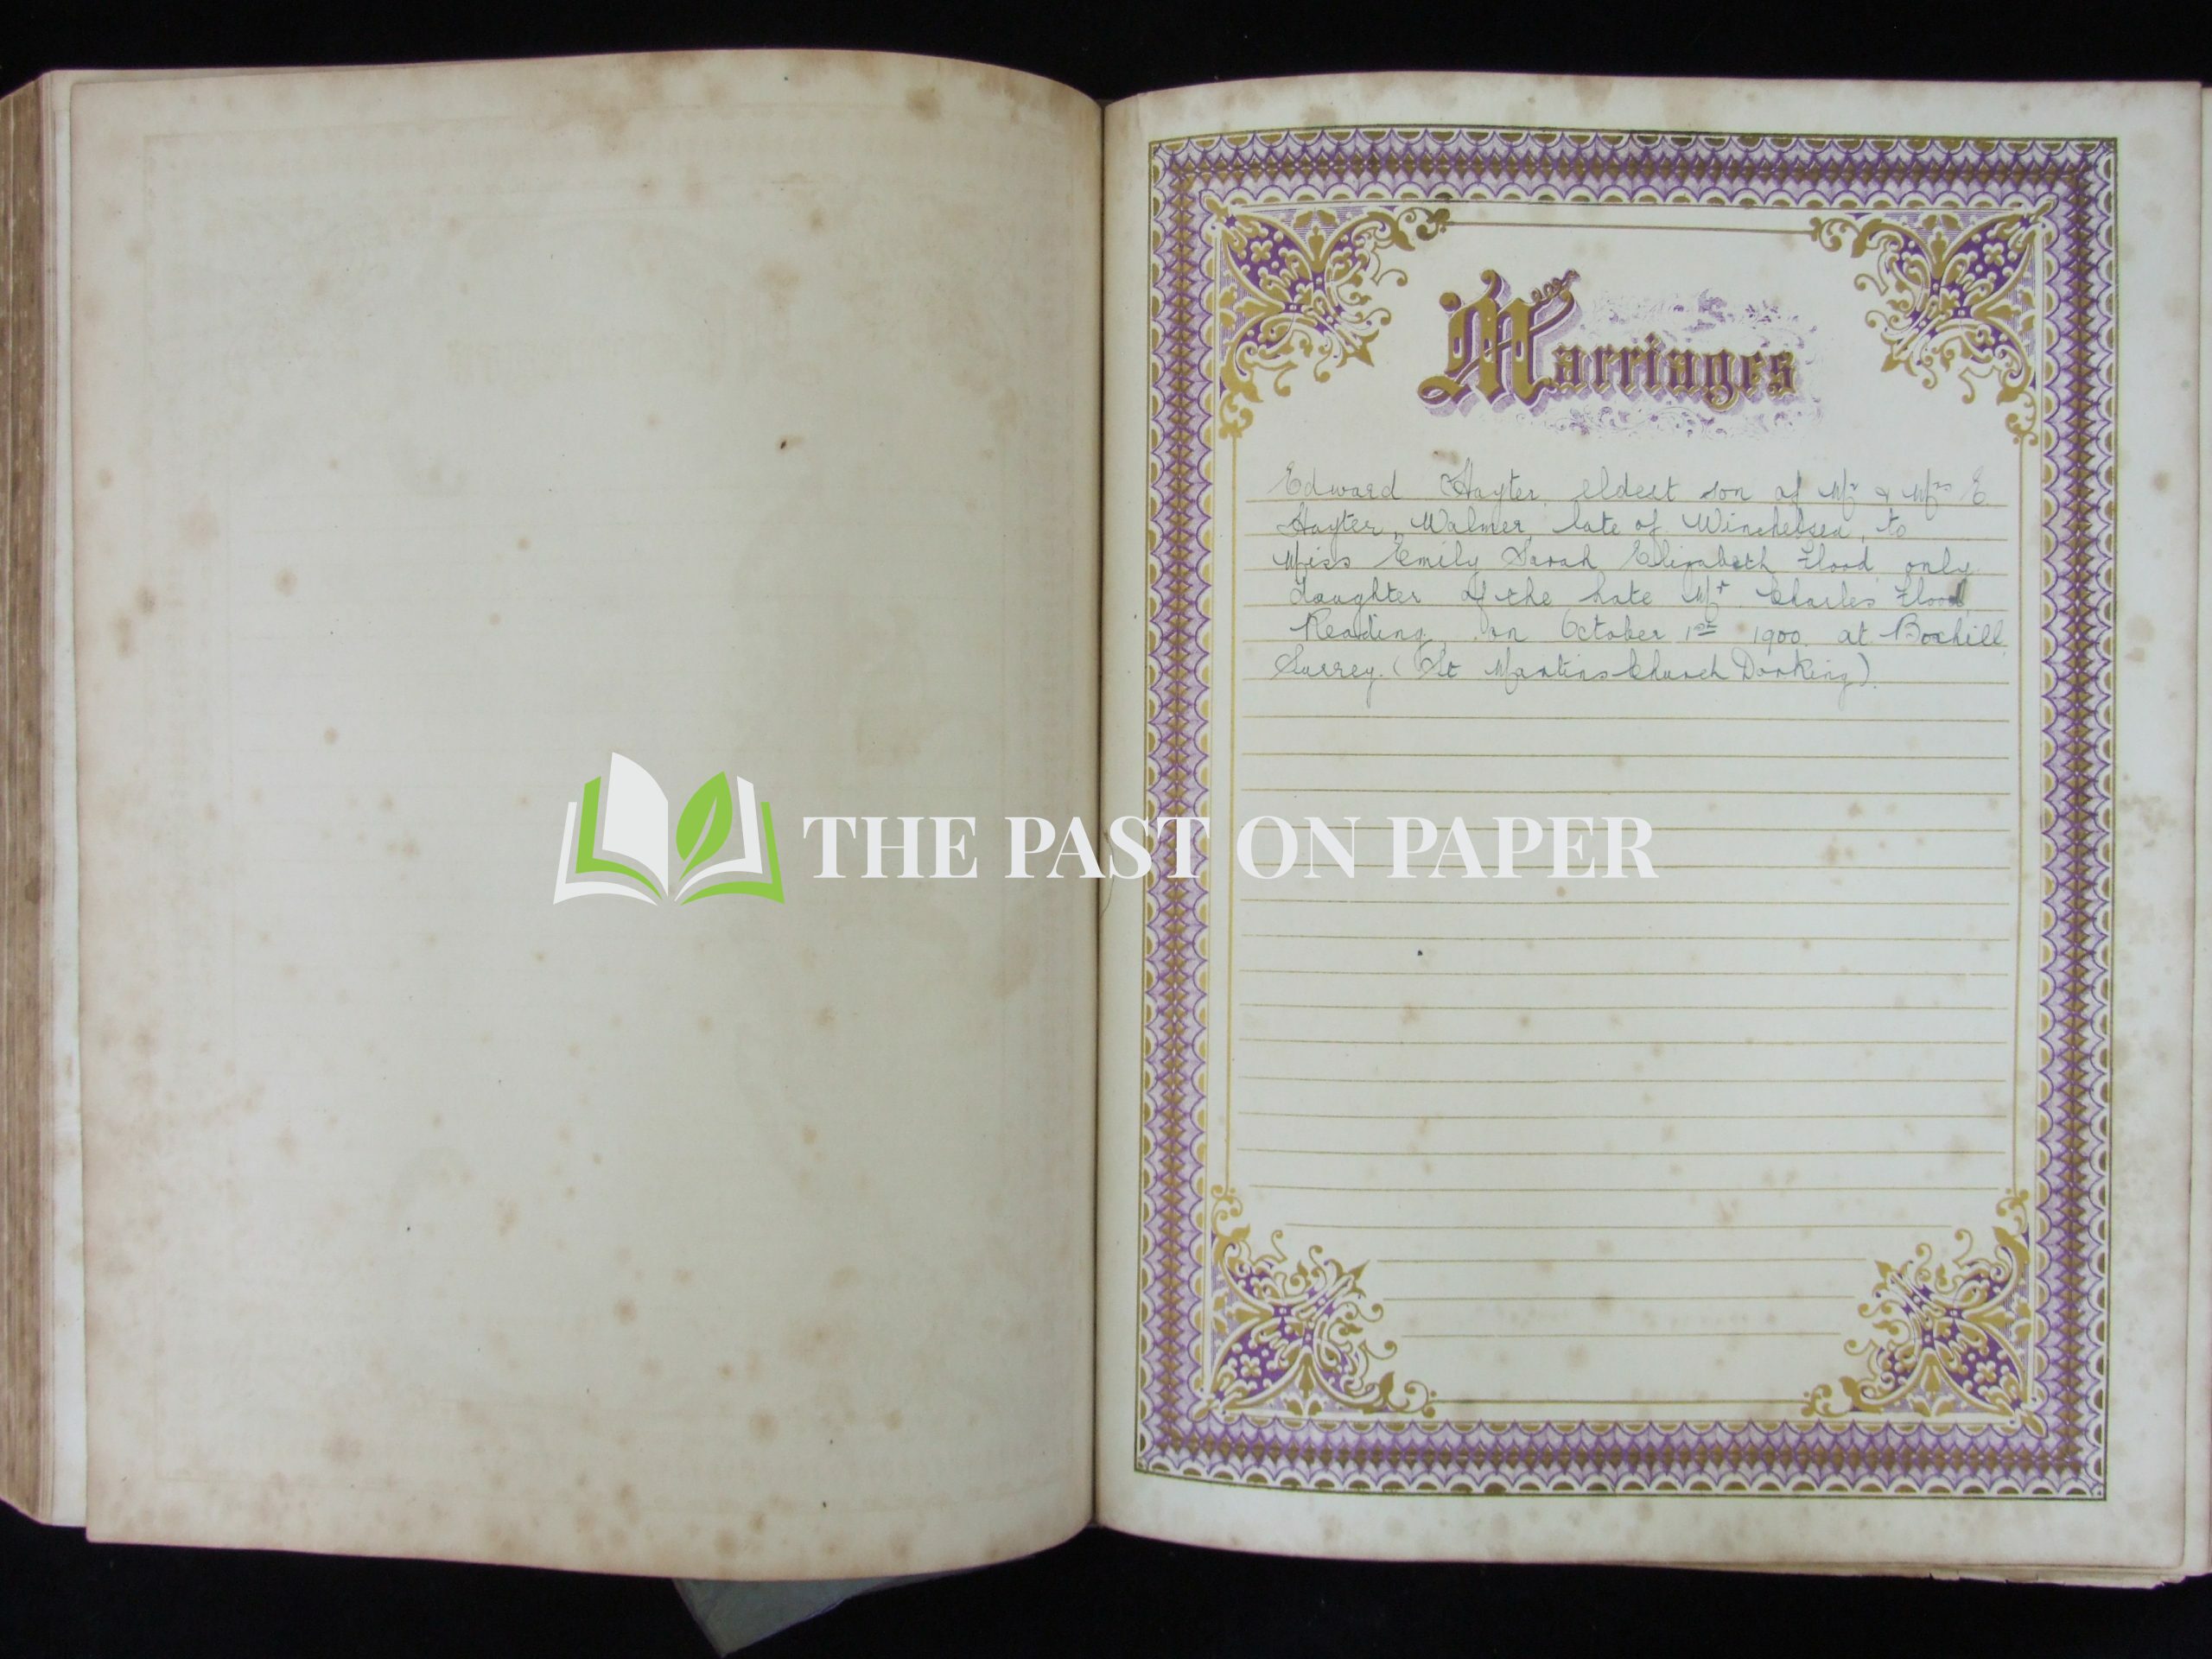 Marriages
Edward Hayter, eldest son of Mr & Mrs E
Hayter, Walmer, late of Winchelsea, to
Miss Emily Sarah Elizabeth Flood, only
daughter of the late Mr. Charles Flood,
Reading, on October 1st 1900. at Boxhill.
Surrey. (St Martins Church Dorking).
THE PAST ON PAPER